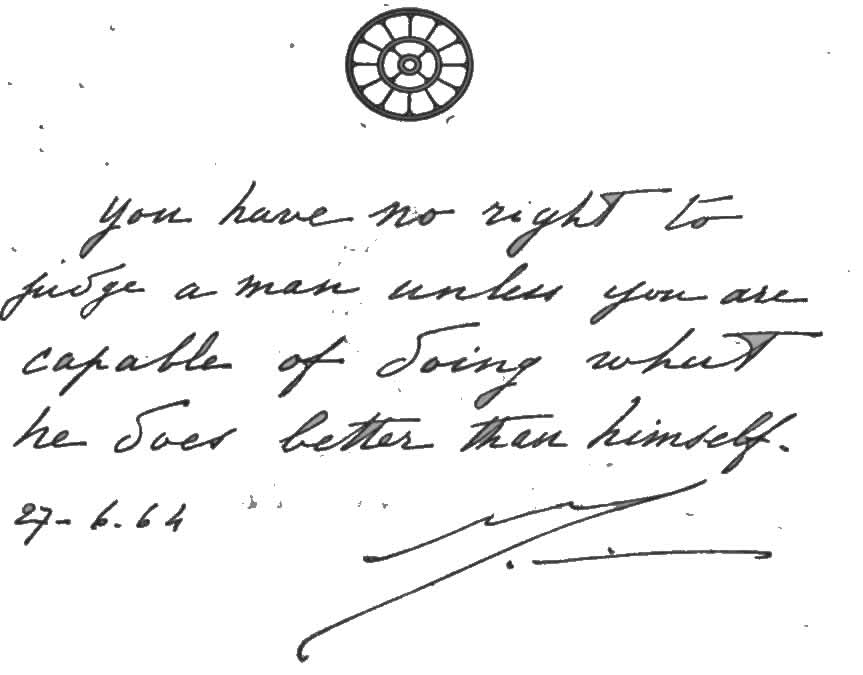 you have no right to
judge a man unless you are
capable of doing what
he does better than himself.
27-6.64